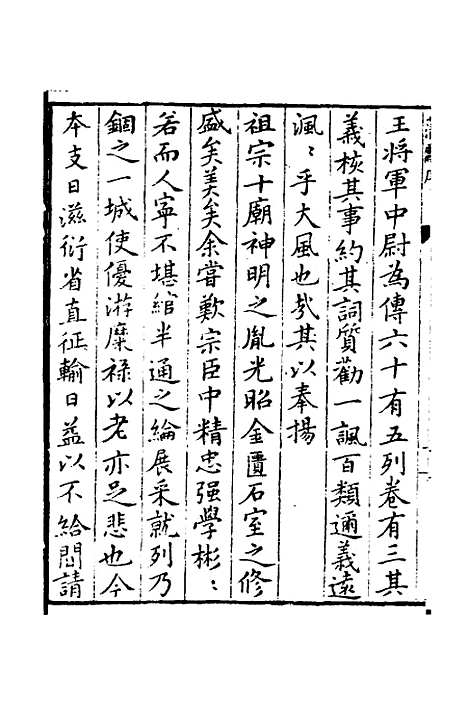 王將軍中尉為傳六十有五列卷有三其
義核其事約其詞質勸一諷百類邇義遠
渢〻乎大風也㦲其以奉揚
祖宗十廟神明之胤光昭金匱石室之修
盛矣美矣余嘗歎宗臣中精忠强學彬〻
若而人寧不堪綰半通之綸展采就列乃
錮之一城使優游糜祿以老亦足悲也今
本支日滋衍省直征輸日益以不給閭請